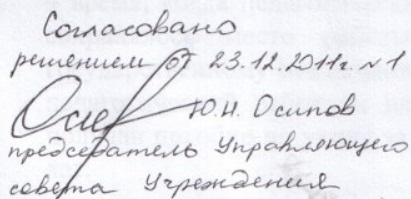 Согласовано
решением от 23.12.2011г. №1
Ю.И. Осипов
председатель Управляющего
совета Учреждения